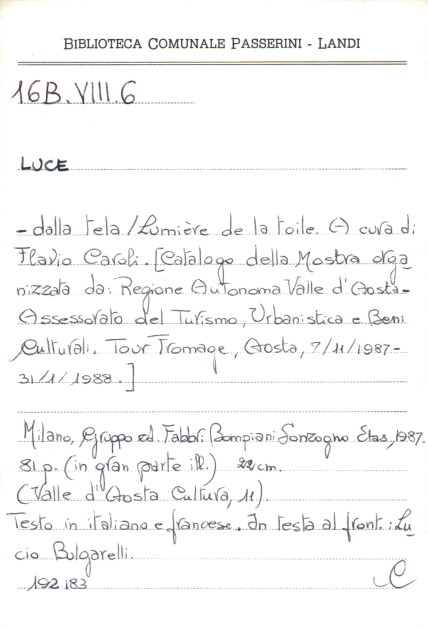 BIBLIOTECA COMUNALE PASSERINI - LANDI
16B.VIII.6
LUCE
- dalla tela / Lumière de la toile. A cura di
Flavio Caroli. [Catalogo della Mostra orga
nizzata da: Regione Autonoma Valle d'Aosta-
Assessorato del Turismo, Urbanistica e Beni
Culturali. Tour Fromage, Aosta, 7/11/1987-
31/1/1988.]
Milano, Gruppo ed. Fabbri Bompiani Sonzogno Etas, 1987.
81 p. (in gran parte ill.) 22 cm.
(Valle d'Aosta Cultura, 11).
Testo in italiano e francese. In testa al front.: Lu
cio Bulgarelli.
192183 C